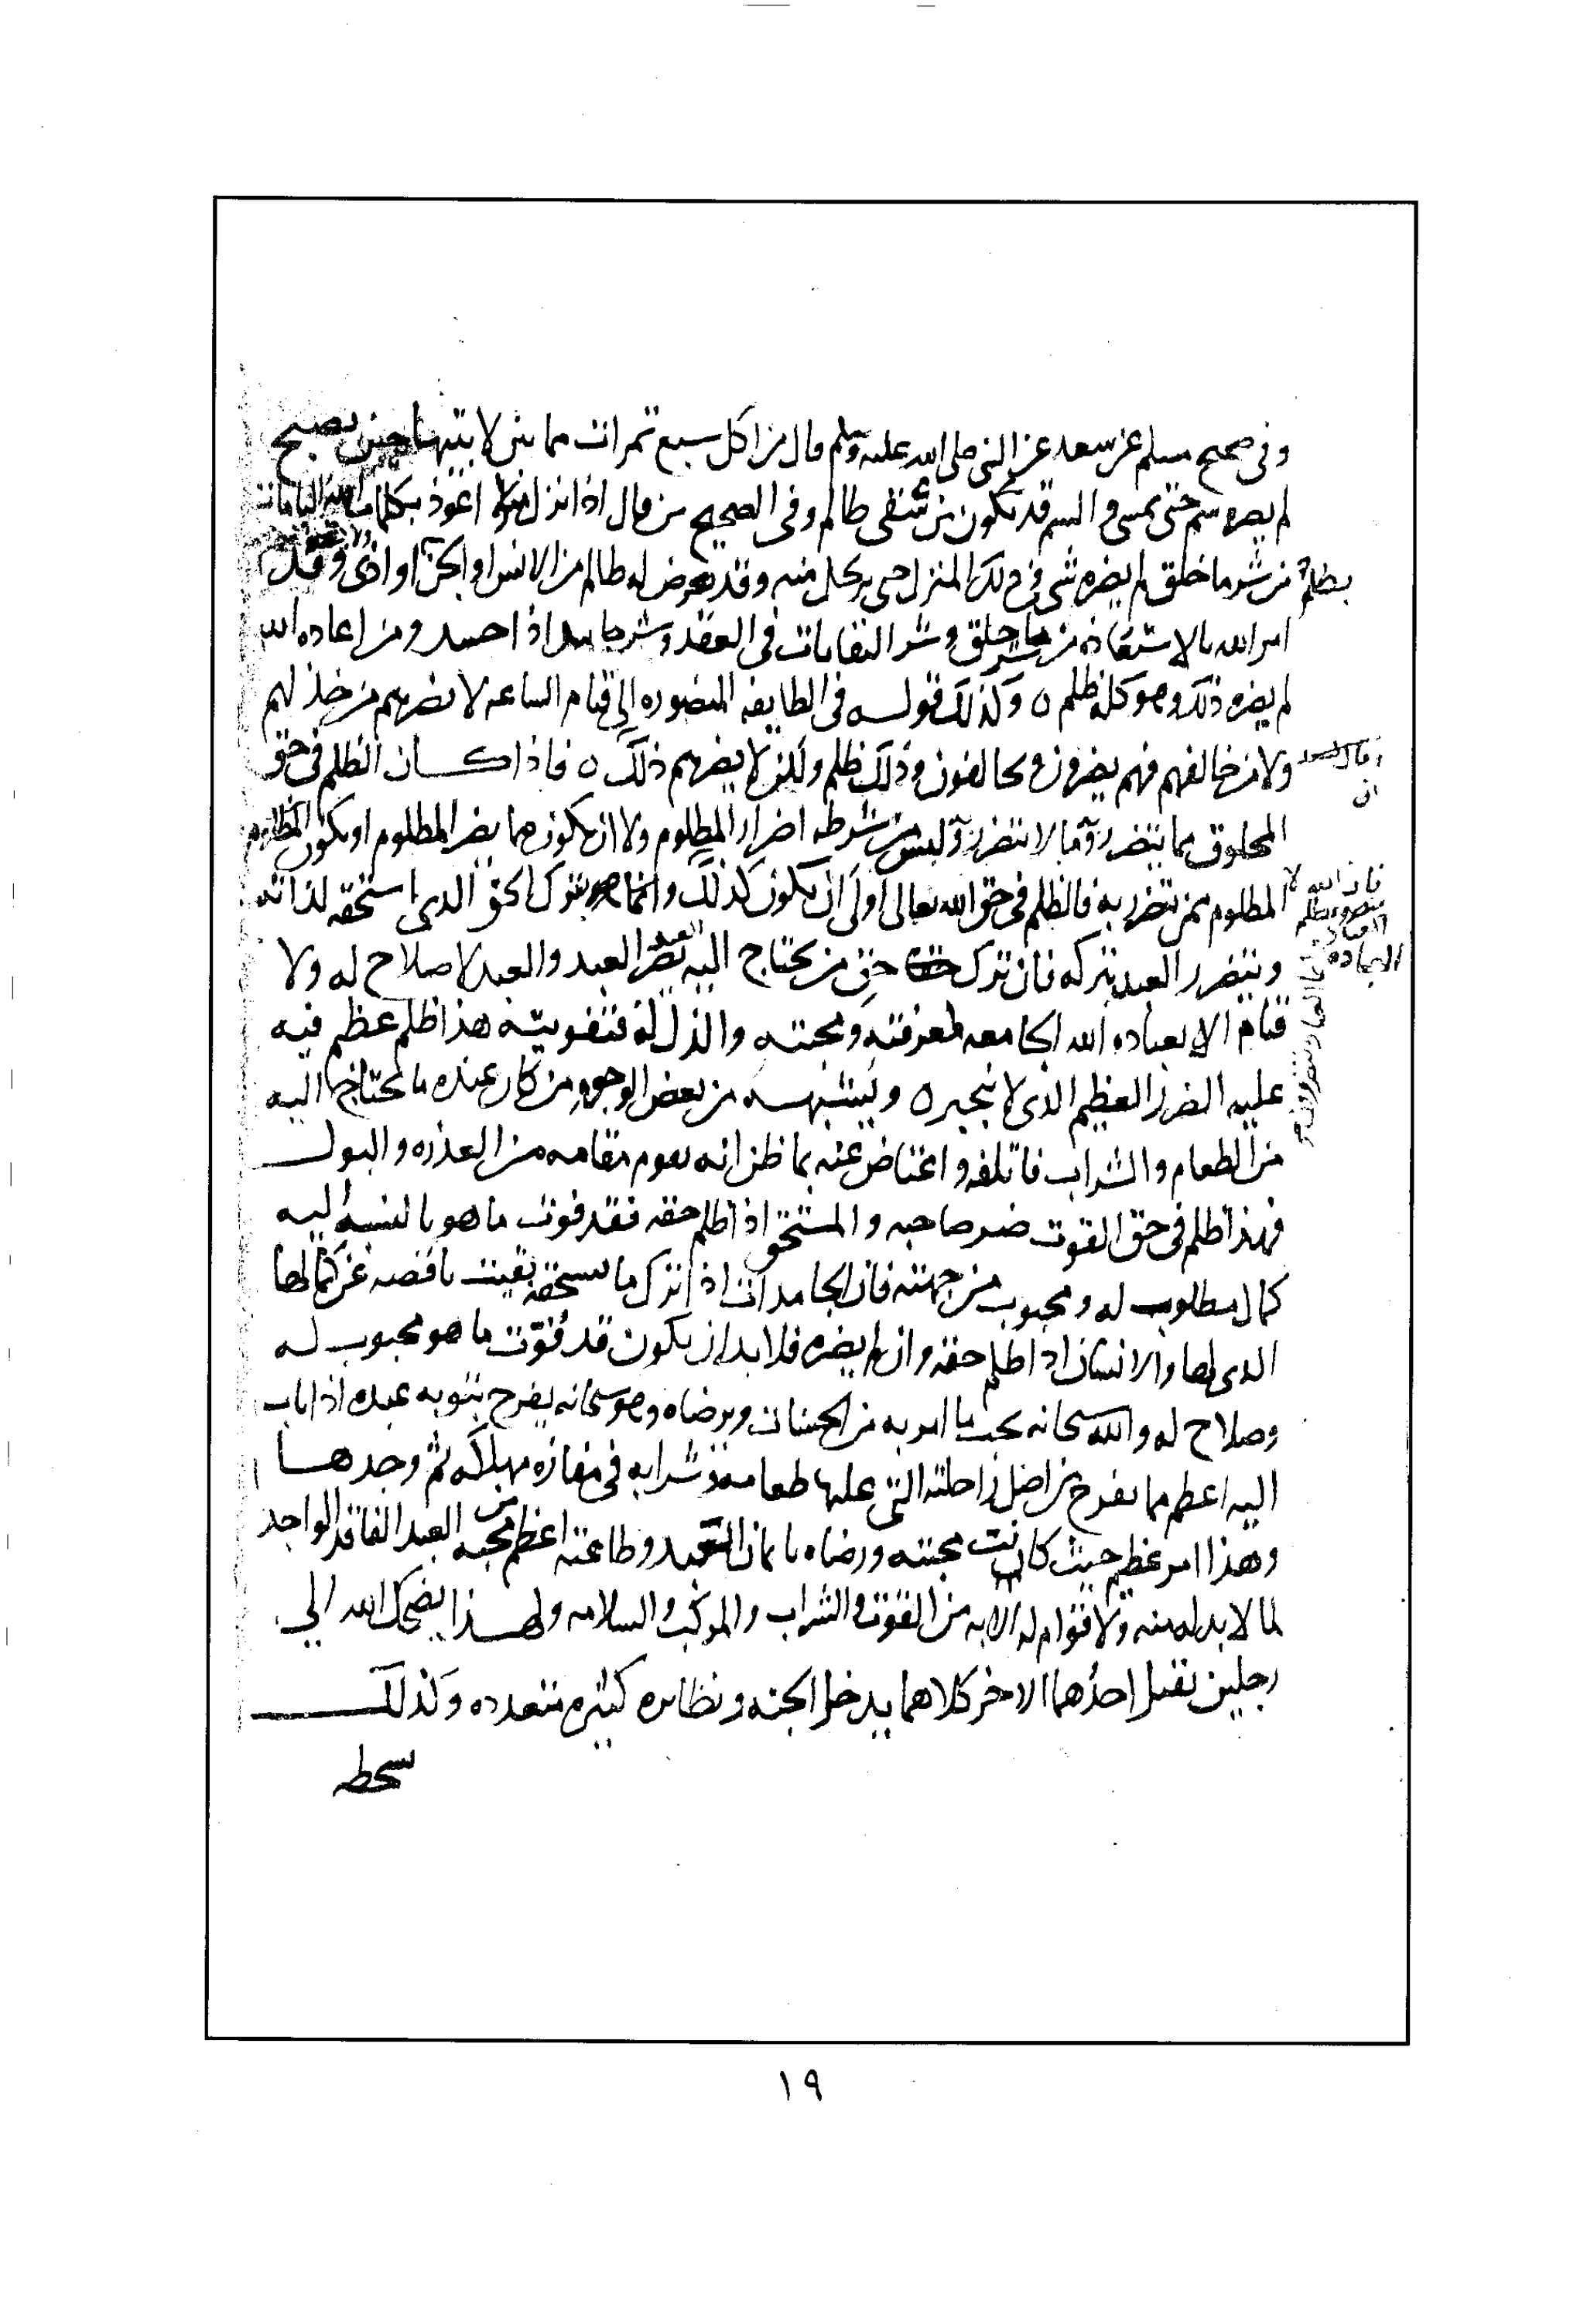 وفي صحيح مسلم عن سعد عن النبي صلى الله عليه وسلم قال من اكل سبع تمرات مما بين لابتيها حين يصبح
لم يضره سم حتى يمسي والسم قد يكون من سقي ظالم وفي الصحيح من قال اذا نزل منزلا اعوذ بكلمات الله التامات
من شر ما خلق لم يضره شي في ذلك المنزل حتى يرحل منه وقد يعرض له ظالم من الانس او الجن او اذى وقد
بظلم
امر الله بالاستعاذه من شر ما خلق وشر النفاثات في العقد وشر حاسد اذا حسد ومن اعاذه الله
لم يضره ذلك وهو كله ظلم ٥ وكذلك قوله في الطايفه المنصوره الى قيام الساعه لا يضرهم من خذلهم
ولا من خالفهم فهم يضرون ويخالفون وذلك ظلم ولكن لا يضرهم ذلك ٥ فاذا كان الظلم في حق
المخلوق بما يتضرر وما لا يتضرر وليس من شرطه اضرار المظلوم ولا ان يكون مما يضر المظلوم او يكون المظلوم
المظلوم ممن يتضرر به فالظلم في حق الله تعالى اولى ان يكون كذلك وانما هو بترك الحق الذي استحقه لذاته
فان الله لا
يتضرر بظلم
العباد
ويتضرر العبد بتركه فان ترك حق من يحتاج اليه يضر العبد والعبد لا صلاح له ولا
قيام الا بعباده الله الجامعه لمعرفته ومحبته والذل له فتفويته هذا ظلم عظم فيه
عليه الضرر العظيم الذي لا ينجبر ٥ ويشبهه من بعض الوجوه من كان عنده ما يحتاج اليه
من الطعام والشراب فاتلفه واعتاض عنه بما ظن انه يقوم مقامه من العذره والبول
فهذا ظلم في حق القوت ضر صاحبه والمستحق اذا ظلم حقه فقد فوت ما هو بالنسبه اليه
كمال مطلوب له ومحبوب من جهته فان الجامدات اذا ترك ما تستحقه بقيت ناقصه عن كمالها
الذي لها والانسان اذا ظلم حقه وان لم يضره فلا بد ان يكون قد فوت ما هو محبوب له
وصلاح له والله سبحانه يحب ما امر به من الحسنات ويرضاه وهو سبحانه يفرح بتوبه عبده اذا تاب
اليه اعظم مما يفرح من اضل راحلته التي عليها طعامه وشرابه في مفازه مهلكه ثم وجدها
وهذا امر عظيم حيث كانت محبته ورضاه بايمان العبد وطاعته اعظم من محبه العبد الفاقد الواجد
لما لا بد له منه ولا قوام له الا به من القوت والشراب والمركب والسلامه ولهذا يضحك الله الى
رجلين يقتل احدهما الاخر كلاهما يدخل الجنه ونظايره كثيره متعدده وكذلك
سخطه
١٩